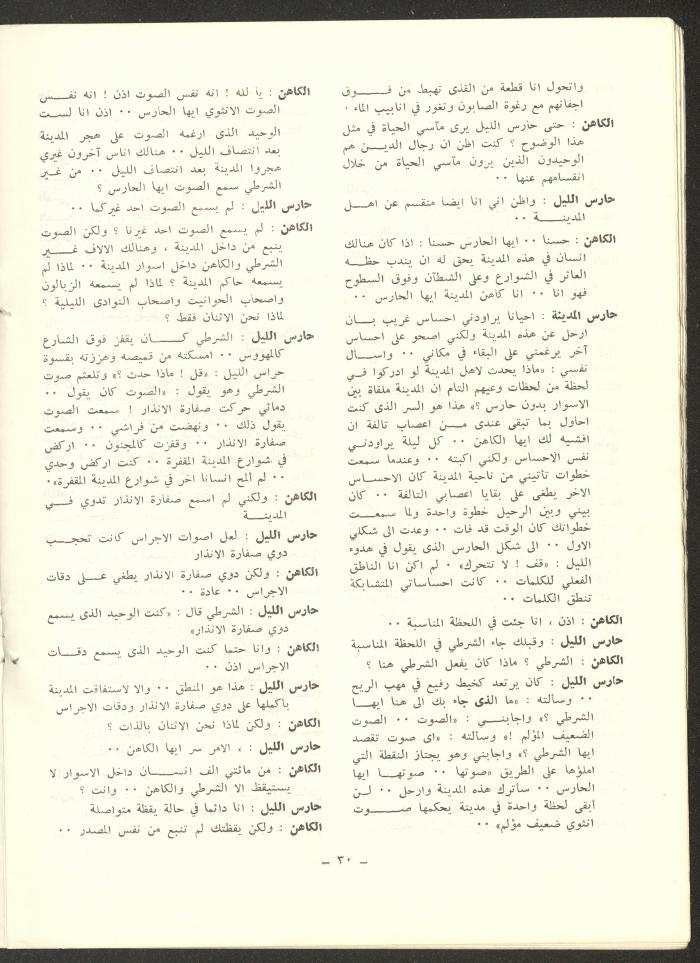 واتحول انا قطعة من القذى تهبط من فـــــوق
اجفانهم مع رغوة الصابون وتغور في انابيب الماء ٠
الكاهن : حتى حارس الليل يرى مآسي الحياة في مثل
هذا الوضوح ؟ كنت اظن ان رجال الديـــن هم
الوحيدون الذين يرون مآسي الحياة من خلال
انقسامهم عنها ٠٠
حارس الليل : واظن اني انا ايضا منقسم عن اهــل
المدينـــــة ٠٠
الكاهن : حسنا ٠٠ ايها الحارس حسنا : اذا كان هنالك
انسان في هذه المدينة يحق له ان يندب حظـــه
العاثر في الشوارع وعلى الشطآن وفوق السطوح
فهو انا ٠٠ انا كاهن المدينة ايها الحارس ٠٠
حارس المدينة : احيانا يراودني احساس غريب بـــان
ارحل عن هذه المدينة ولكني اصحو على احساس
آخر يرغمني على البقاء في مكاني ٠٠ واســـال
نفسي : «ماذا يحدث لاهل المدينة لو ادركوا فـــي
لحظة من لحظات وعيهم التام ان المدينة ملقاة بين
الاسوار بدون حارس ؟» هذا هو السر الذى كنت
احاول بما تبقى عندى مـــن اعصاب تالفة ان
افشيه لك ايها الكاهن ٠٠ كل ليلة يراودنـــي
نفس الاحساس ولكني اكبته ٠٠ وعندما سمعت
خطوات تأتيني من ناحية المدينة كان الاحســـاس
الاخر يطغى على بقايا اعصابي التالفة ٠٠ كان
بيني وبين الرحيل خطوة واحدة ولما سمعـــت
خطواتك كان الوقت قد فات ٠٠ وعدت الى شكلي
الاول ٠٠ الى شكل الحارس الذى يقول في هدوء
الليل : «قف ! لا تتحرك» ٠ لم اكن انا الناطق
الفعلي للكلمات ٠٠ كانت احساساتي المتشابكة
تنطق الكلمات ٠٠
الكاهن : اذن ، انا جئت في اللحظة المناسبة ٠٠
حارس الليل : وقبلك جاء الشرطي في اللحظة المناسبة
الكاهن : الشرطي ؟ ماذا كان يفعل الشرطي هنا ؟
حارس الليل : كان يرتعد كخيط رفيع في مهب الريح
٠٠ وسالته : «ما الذى جاء بك الى هنا ايهـــا
الشرطي ؟» واجابنـــي : «الصوت ٠٠ الصوت
الضعيف المؤلم !» وسالته : «اى صوت تقصد
ايها الشرطي ؟» واجابني وهو يجتاز النقطة التي
املؤها على الطريق «صوتها ٠٠ صوتهـــا ايها
الحارس ٠٠ سأترك هذه المدينة وارحل ٠٠ لـــن
أبقى لحظة واحدة في مدينة يحكمها صـــــوت
انثوي ضعيف مؤلم» ٠٠
الكاهن : يا لله ! انه نفس الصوت اذن ! انه نفـــس
الصوت الانثوي ايها الحارس ٠٠ اذن انا لســت
الوحيد الذى ارغمه الصوت على هجر المدينة
بعد انتصاف الليل ٠٠ هنالك اناس آخرون غيري
هجروا المدينة بعد انتصاف الليل ٠٠ من غـــير
الشرطي سمع الصوت ايها الحارس ؟
حارس الليل : لم يسمع الصوت احد غيركما ٠٠
الكاهن : لم يسمع الصوت احد غيرنا ؟ ولكن الصوت
ينبع من داخل المدينة ، وهنالك الالاف غـــــير
الشرطي والكاهن داخل اسوار المدينة ٠٠ لماذا لم
يسمعه حاكم المدينة ؟ لماذا لم يسمعه الزبالون
واصحاب الحوانيت واصحاب النوادى الليلية ؟
لماذا نحن الاثنان فقط ؟
حارس الليل : الشرطي كـــــان يقفز فوق الشارع
كالمهووس ٠٠ امسكته من قميصه وهززته بقسوة
حراس الليل : «قل ! ماذا حدث ؟» وتلعثم صوت
الشرطي وهو يقول : «الصوت كان يقول ٠٠
دمائي حركت صفارة الانذار ! سمعت الصوت
يقول ذلك ٠٠ ونهضت من فراشي ٠٠ وسمعت
صفارة الانذار ٠٠ وقفزت كالمجنون ٠٠ اركض
في شوارع المدينة المقفرة ٠٠ كنت اركض وحدي
٠٠ لم المح انسانا اخر في شوارع المدينة المقفرة»٠
الكاهن : ولكني لم اسمع صفارة الانذار تدوي فـــي
المدينـــة
حارس الليل : لعل اصوات الاجراس كانت تحجـــب
دوي صفارة الانذار
الكاهن : ولكن دوي صفارة الانذار يطغي عـــلى دقات
الاجراس ٠٠ عادة ٠٠
حارس الليل : الشرطي قال : «كنت الوحيد الذى يسمع
دوي صفارة الانذار»
الكاهن : وانا حتما كنت الوحيد الذى يسمع دقـــات
الاجراس اذن ٠٠
حارس الليل : هذا هو المنطق ٠٠ والا لاستفاقت المدينة
باكملها على دوي صفارة الانذار ودقات الاجراس
الكاهن : ولكن لماذا نحن الاثنان بالذات ؟
حارس الليل : ، الامر سر ايها الكاهن ٠٠
الكاهن : من مائتي الف انســـان داخل الاسوار لا
يستيقظ الا الشرطي والكاهن ٠٠ وانت ؟
حارس الليل : انا دائما في حالة يقظة متواصلة
الكاهن : ولكن يقظتك لم تنبع من نفس المصدر ٠٠
– ٣٠ –